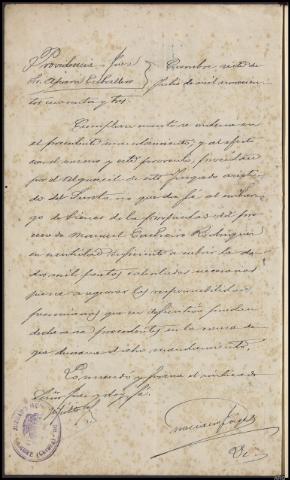 Providencia. Juez
Sr. Apará Caballero
Cambre, siete de
Julio de mil novecien-
tos cuarenta y tres.
Cumplase cuanto se ordena en
el precedente mandamiento, y al efecto
con el mismo y esta provincia, procédase
por el Alguacil de este Juzgado asistido
del Secreta no que da fé al embar-
go de bienes de la propiedad del
proceso de Manuel Cacheiro Rodriguez
en cantidad suficiente a cubrir la de
dos mil pesetas calculadas necesarias
para asegurar las responsabilidades
pecuniarias que en definitiva puedan
declararse procedentes en la causa de
que dimana dicho mandamiento.
Lo mandó y firma el indicado
Señor Juez y doy fé.